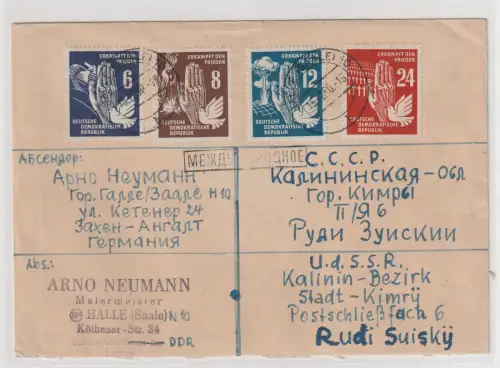 ERKÄMPFT DEN FRIEDEN
6
DEUTSCHE
DEMOKRATISCHE
REPUBLIK
ERKÄMPFT DEN FRIEDEN
8
DEUTSCHE
DEMOKRATISCHE
REPUBLIK
ERKÄMPFT DEN FRIEDEN
12
DEUTSCHE
DEMOKRATISCHE
REPUBLIK
ERKÄMPFT DEN FRIEDEN
24
DEUTSCHE
DEMOKRATISCHE
REPUBLIK
Абсендер:
Арно Неуманн
Гор. Галле/Заале н 10
ул. Кетенер 24
Захен-Ангалт
Германия
С.С.С.Р.
Калининская-обл
Гор. Кимры
П/Я 6
Руди Зуискии
Abs.:
ARNO NEUMANN
Malermeister
HALLE (Saale) N 10
Köthener-Str. 24
DDR
U.d.S.S.R.
Kalinin-Bezirk
Stadt-Kimry
Postschließfach 6
Rudi Suiskÿ